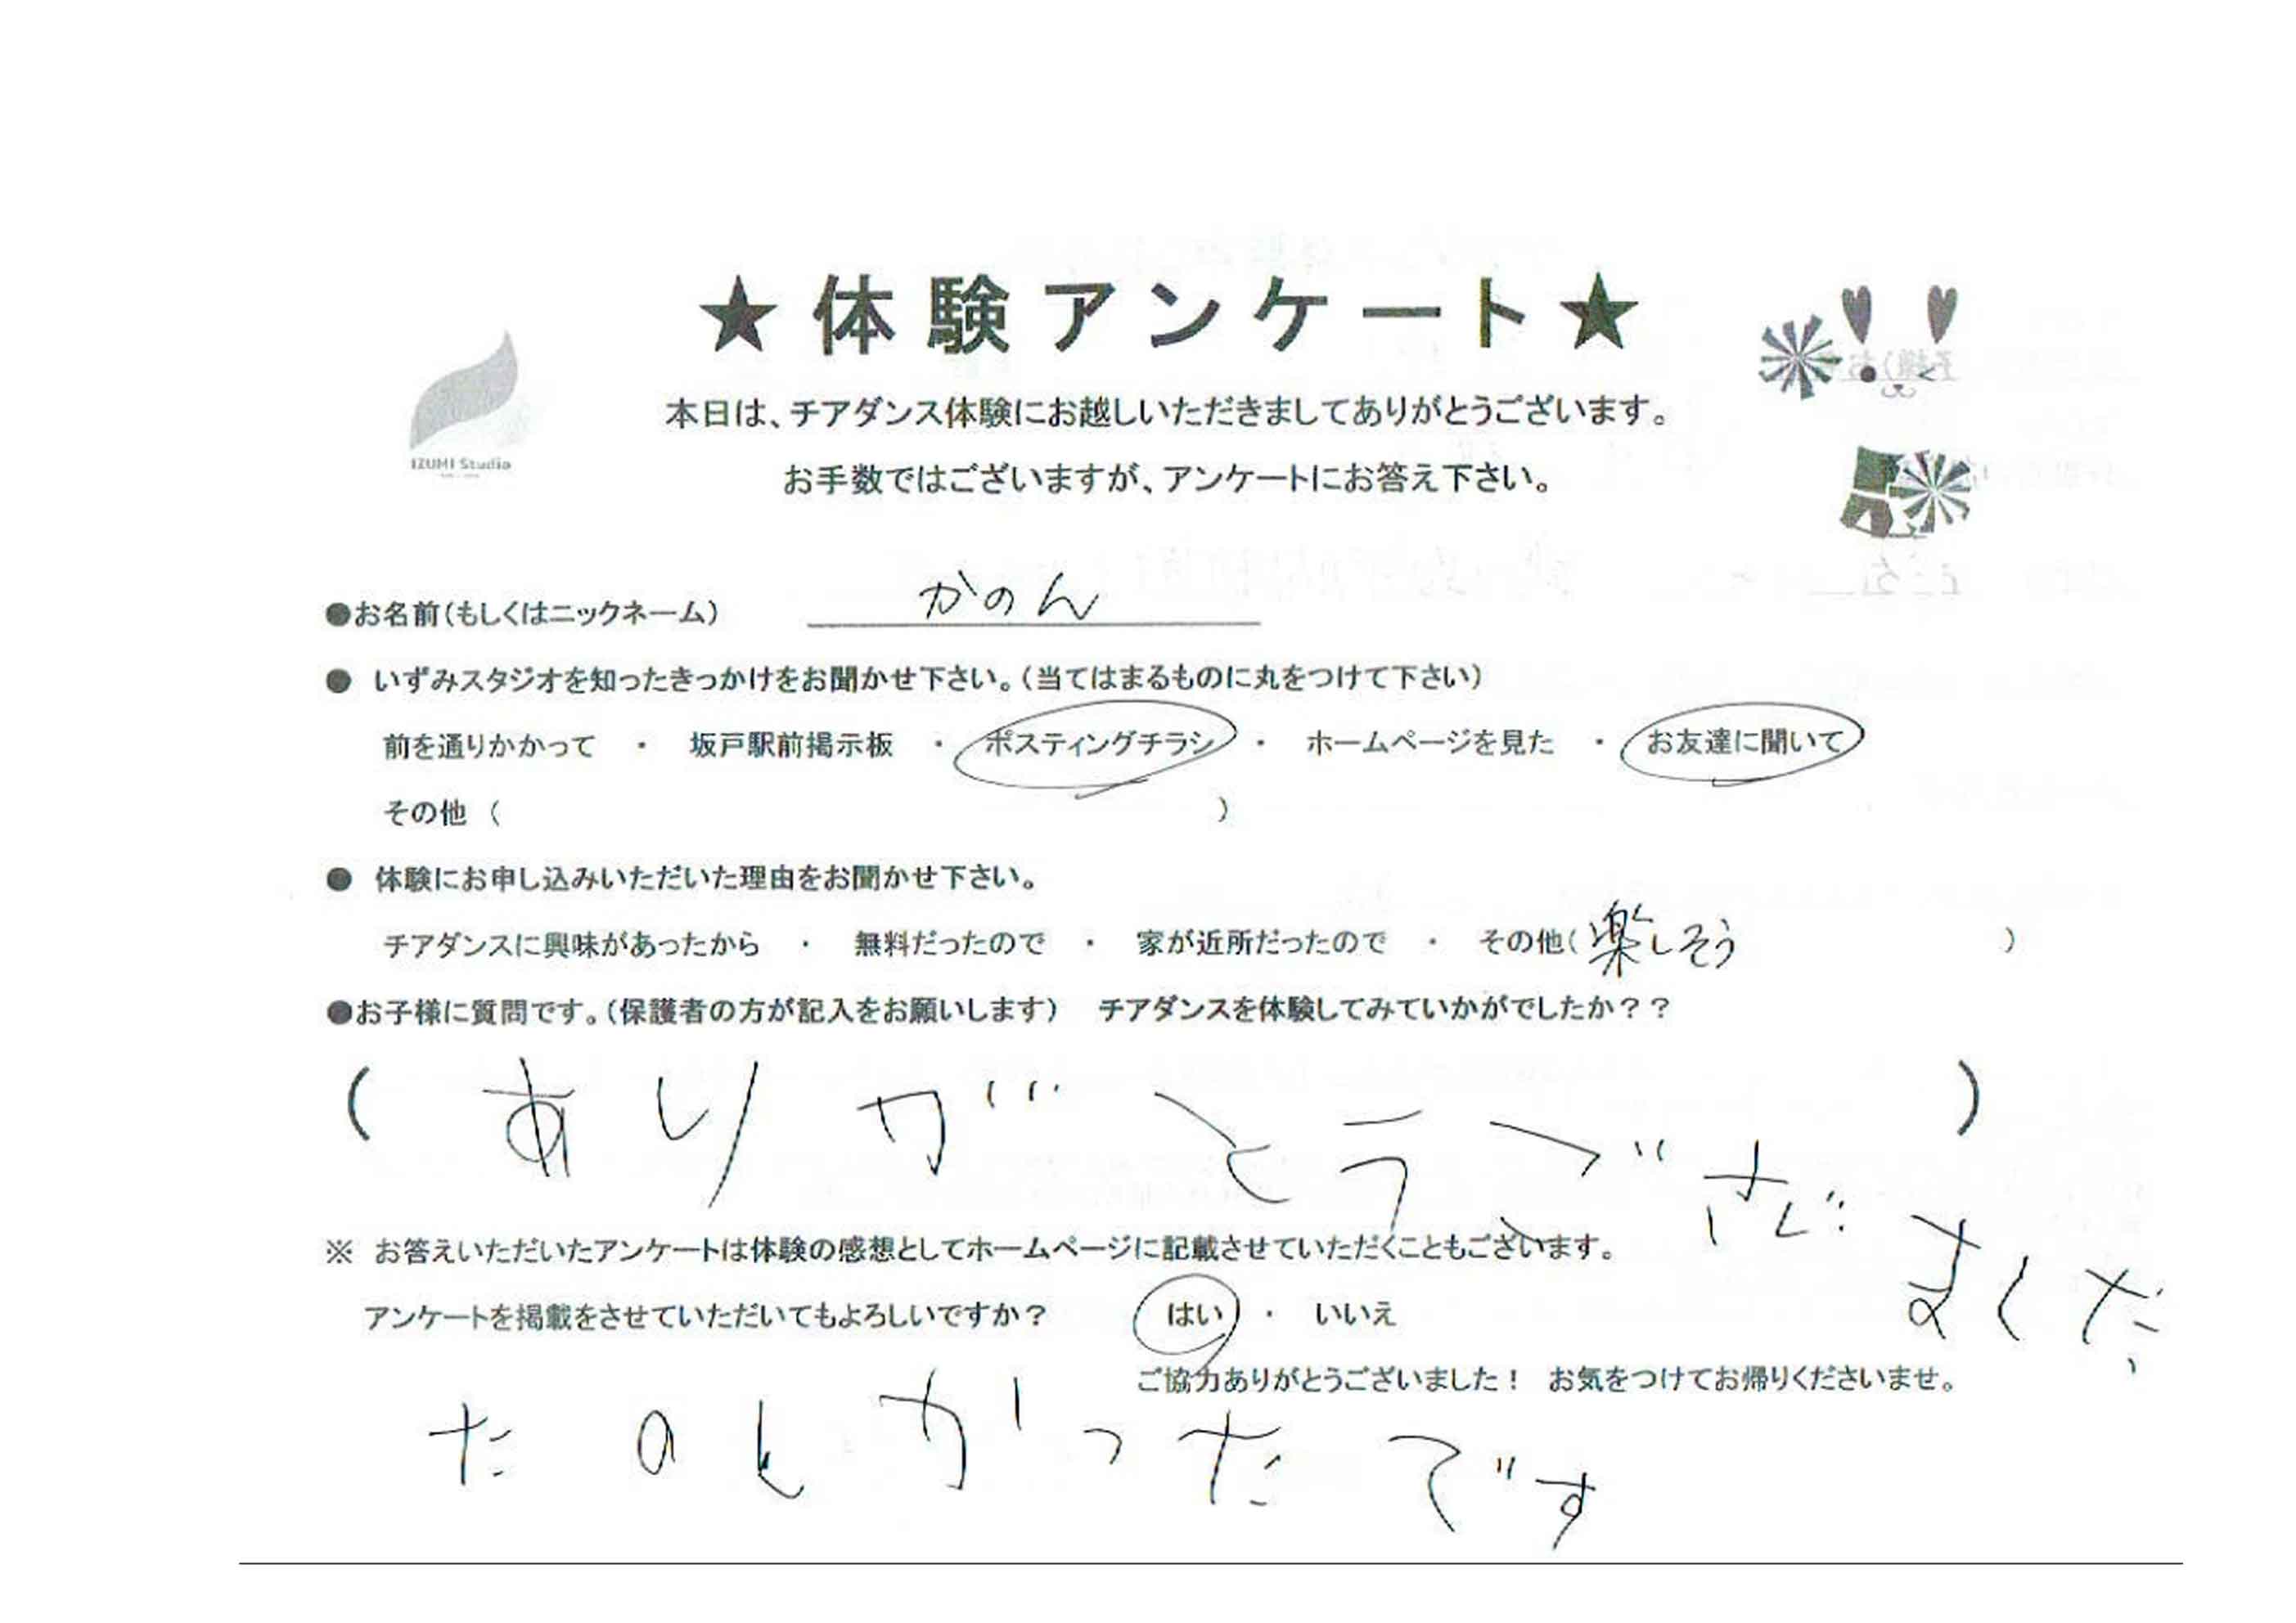 ★体験アンケート★
IZUMI Studio
本日は、チアダンス体験にお越しいただきましてありがとうございます。
お手数ではございますが、アンケートにお答え下さい。
●お名前(もしくはニックネーム) かのん
● いずみスタジオを知ったきっかけをお聞かせ下さい。(当てはまるものに丸をつけて下さい)
前を通りかかって ・ 坂戸駅前掲示板 ・ ポスティングチラシ ・ ホームページを見た ・ お友達に聞いて
その他 ( )
● 体験にお申し込みいただいた理由をお聞かせ下さい。
チアダンスに興味があったから ・ 無料だったので ・ 家が近所だったので ・ その他( 楽しそう )
●お子様に質問です。(保護者の方が記入をお願いします) チアダンスを体験してみていかがでしたか??
( ありがとうござ )
※ お答えいただいたアンケートは体験の感想としてホームページに記載させていただくこともございます。
アンケートを掲載をさせていただいてもよろしいですか? はい ・ いいえ
ご協力ありがとうございました! お気をつけてお帰りくださいませ。
たのしかったです